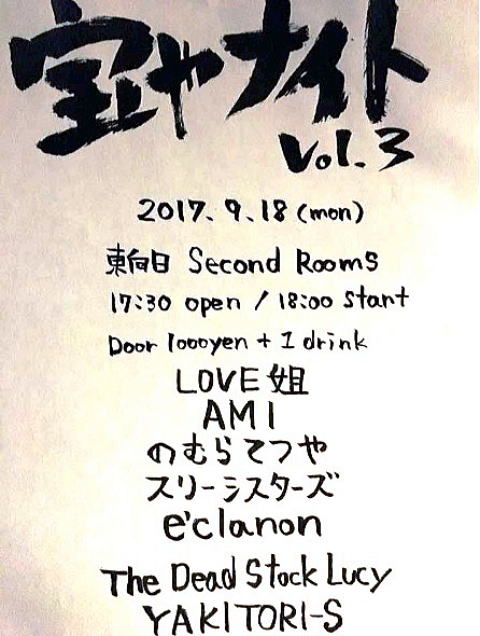 宝やナイト
Vol.3
2017.9.18(mon)
東向日 Second Rooms
17:30 open / 18:00 start
Door 1000yen + 1 drink
LOVE姐
AMI
のむらてつや
スリーシスターズ
e'clanon
The Dead Stock Lucy
YAKITORI-S